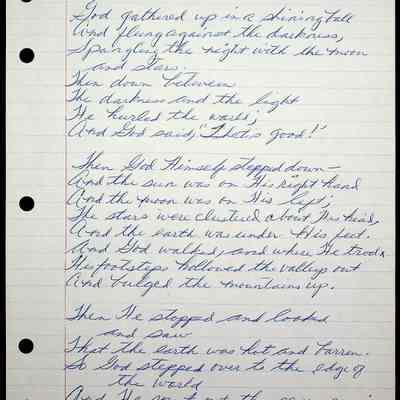 God gathered up in a shining ball
And flung against the darkness,
Spangling the night with the moon
and stars.
Then down between
The darkness and the light
He hurled the world;
And God said, "That's good!"
Then God Himself stepped down—
And the sun was on His right hand
And the moon was on His left;
The stars were clustered about His head,
And the earth was under His feet.
And God walked, and where He trod
His footsteps hollowed the valleys out
And bulged the mountains up.
Then He stopped and looked
and saw
That the earth was hot and barren.
So God stepped over to the edge of
the world